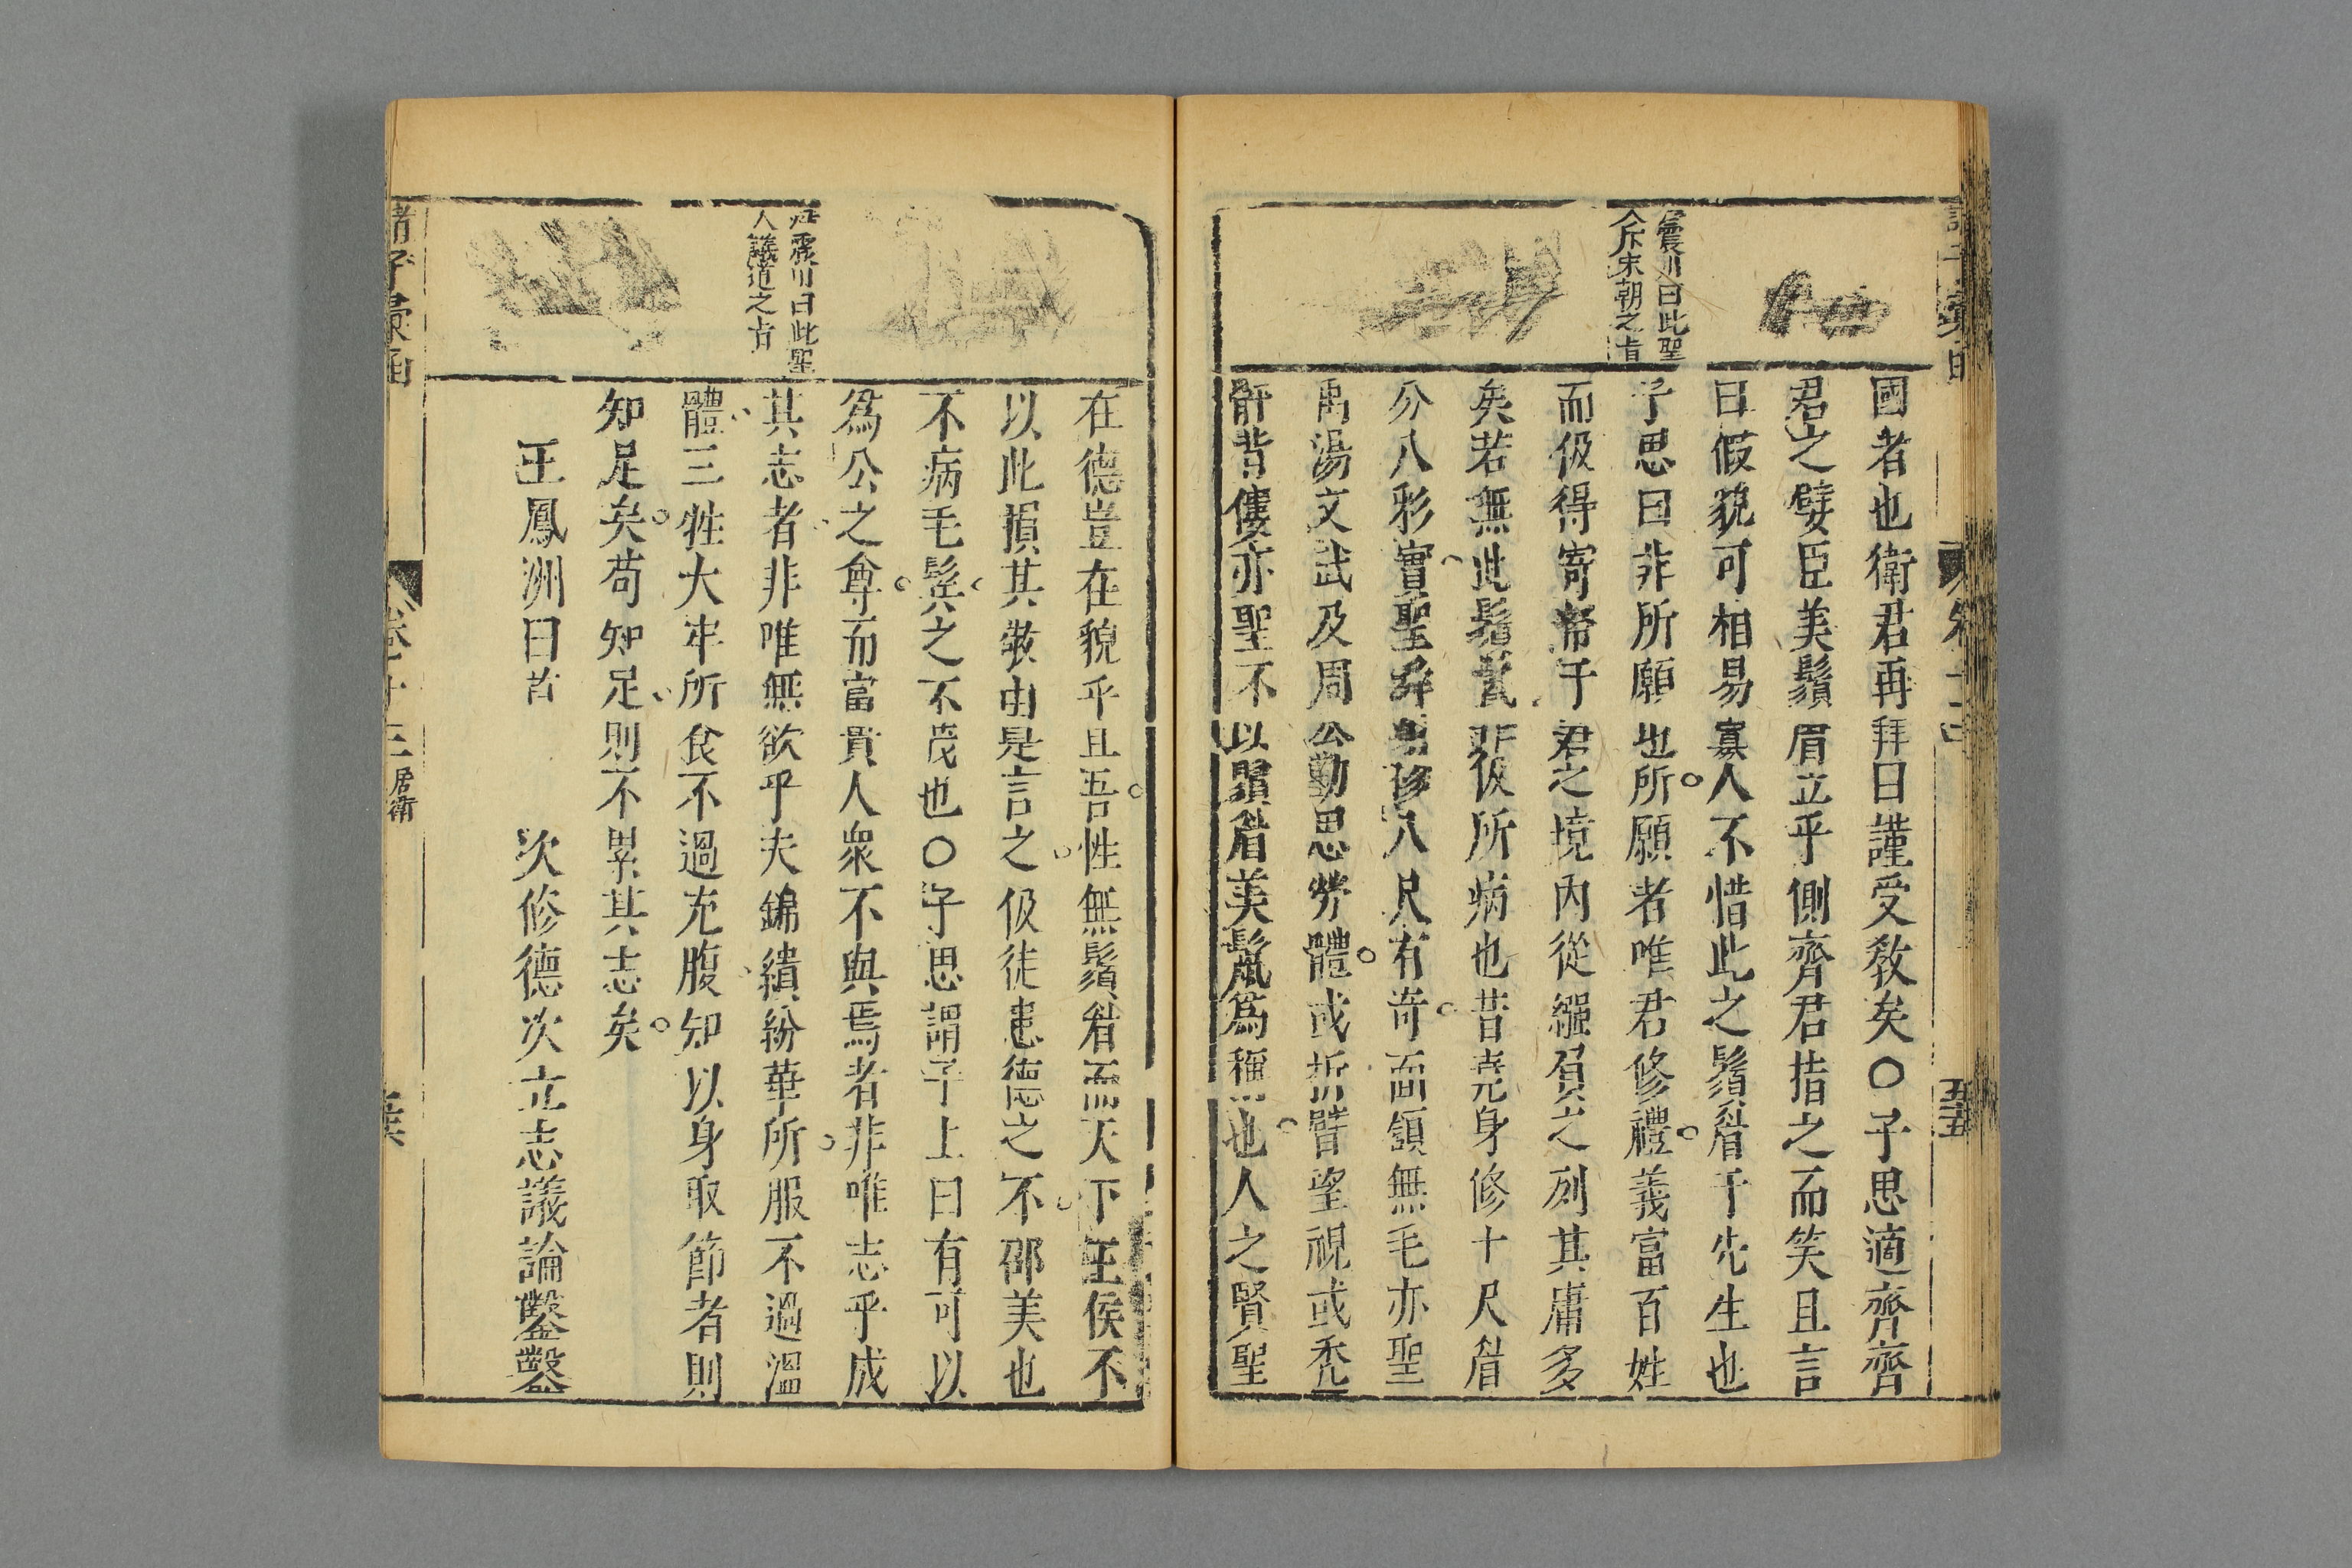 國者也衛君再拜曰謹受敎矣○子思適齊齊
君之嬖臣美鬚眉立乎側齊君指之而笑且言
曰假貌可相易寡人不惜此之鬚眉于先生也
子思曰非所願也所願者唯君修禮義富百姓
而伋得寄帑于君之境內從繦負之列其庸多
矣若無此鬚鬣非伋所病也昔堯身修十尺眉
分八彩實聖舜身修八尺有奇面頷無毛亦聖
禹湯文武及周公勤思勞體或折臂望視或禿
骭背僂亦聖不以鬚眉美鬣爲稱也人之賢聖
震川曰此聖
人斥末朝之旨
在德豈在貌乎且吾性無鬚眉而天下王侯不
以此損其敬由是言之伋徒患德之不邵美也
不病毛鬢之不茂也○子思謂子上曰有可以
爲公之尊而富貴人衆不與焉者非唯志乎成
其志者非唯無欲乎夫錦繢紛華所服不過溫
體三牲大牢所食不過充腹知以身取節者則
知足矣苟知足則不累其志矣
王鳳洲曰首 次修德次立志議論鑿鑿
震川曰此聖
人議道之旨
諸子彙函
卷十三
居衛